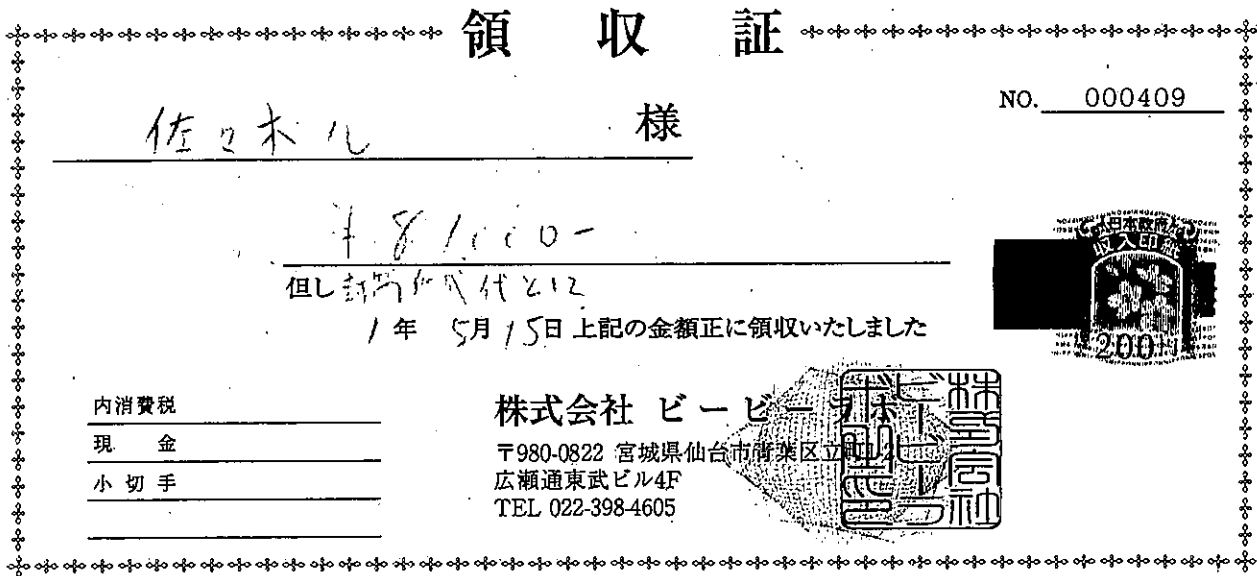 領収証
NO. 000409
佐々木 様
¥81,000-
但し 封筒 代として
1年 5月15日 上記の金額正に領収いたしました
日本政府
収入印紙
200円
内消費税
現金
小切手
株式会社 ビービーラボ
〒980-0822 宮城県仙台市青葉区立町1-2
広瀬通東武ビル4F
TEL 022-398-4605